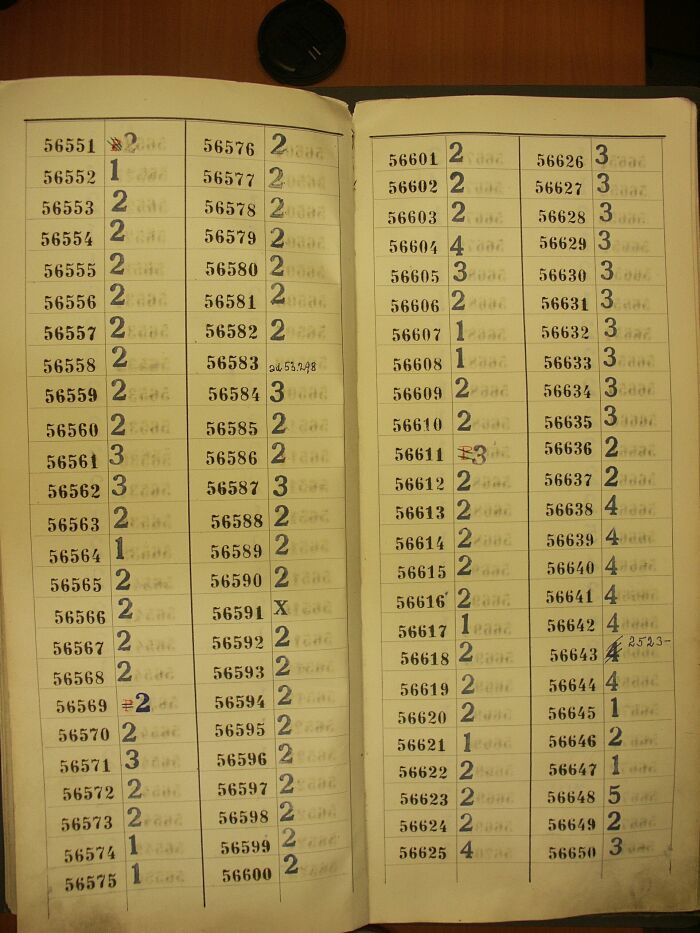 56551 2
56552 1
56553 2
56554 2
56555 2
56556 2
56557 2
56558 2
56559 2
56560 2
56561 3
56562 3
56563 2
56564 1
56565 2
56566 2
56567 2
56568 2
56569 2
56570 2
56571 3
56572 2
56573 2
56574 1
56575 1
56576 2
56577 2
56578 2
56579 2
56580 2
56581 2
56582 2
56583 ad 53.298
56584 3
56585 2
56586 2
56587 3
56588 2
56589 2
56590 2
56591 X
56592 2
56593 2
56594 2
56595 2
56596 2
56597 2
56598 2
56599 2
56600 2
56601 2
56602 2
56603 2
56604 4
56605 3
56606 2
56607 1
56608 1
56609 2
56610 2
56611 3
56612 2
56613 2
56614 2
56615 2
56616 2
56617 1
56618 2
56619 2
56620 2
56621 1
56622 2
56623 2
56624 2
56625 4
56626 3
56627 3
56628 3
56629 3
56630 3
56631 3
56632 3
56633 3
56634 3
56635 3
56636 2
56637 2
56638 4
56639 4
56640 4
56641 4
56642 4
56643 4 2523-
56644 4
56645 1
56646 2
56647 1
56648 5
56649 2
56650 3